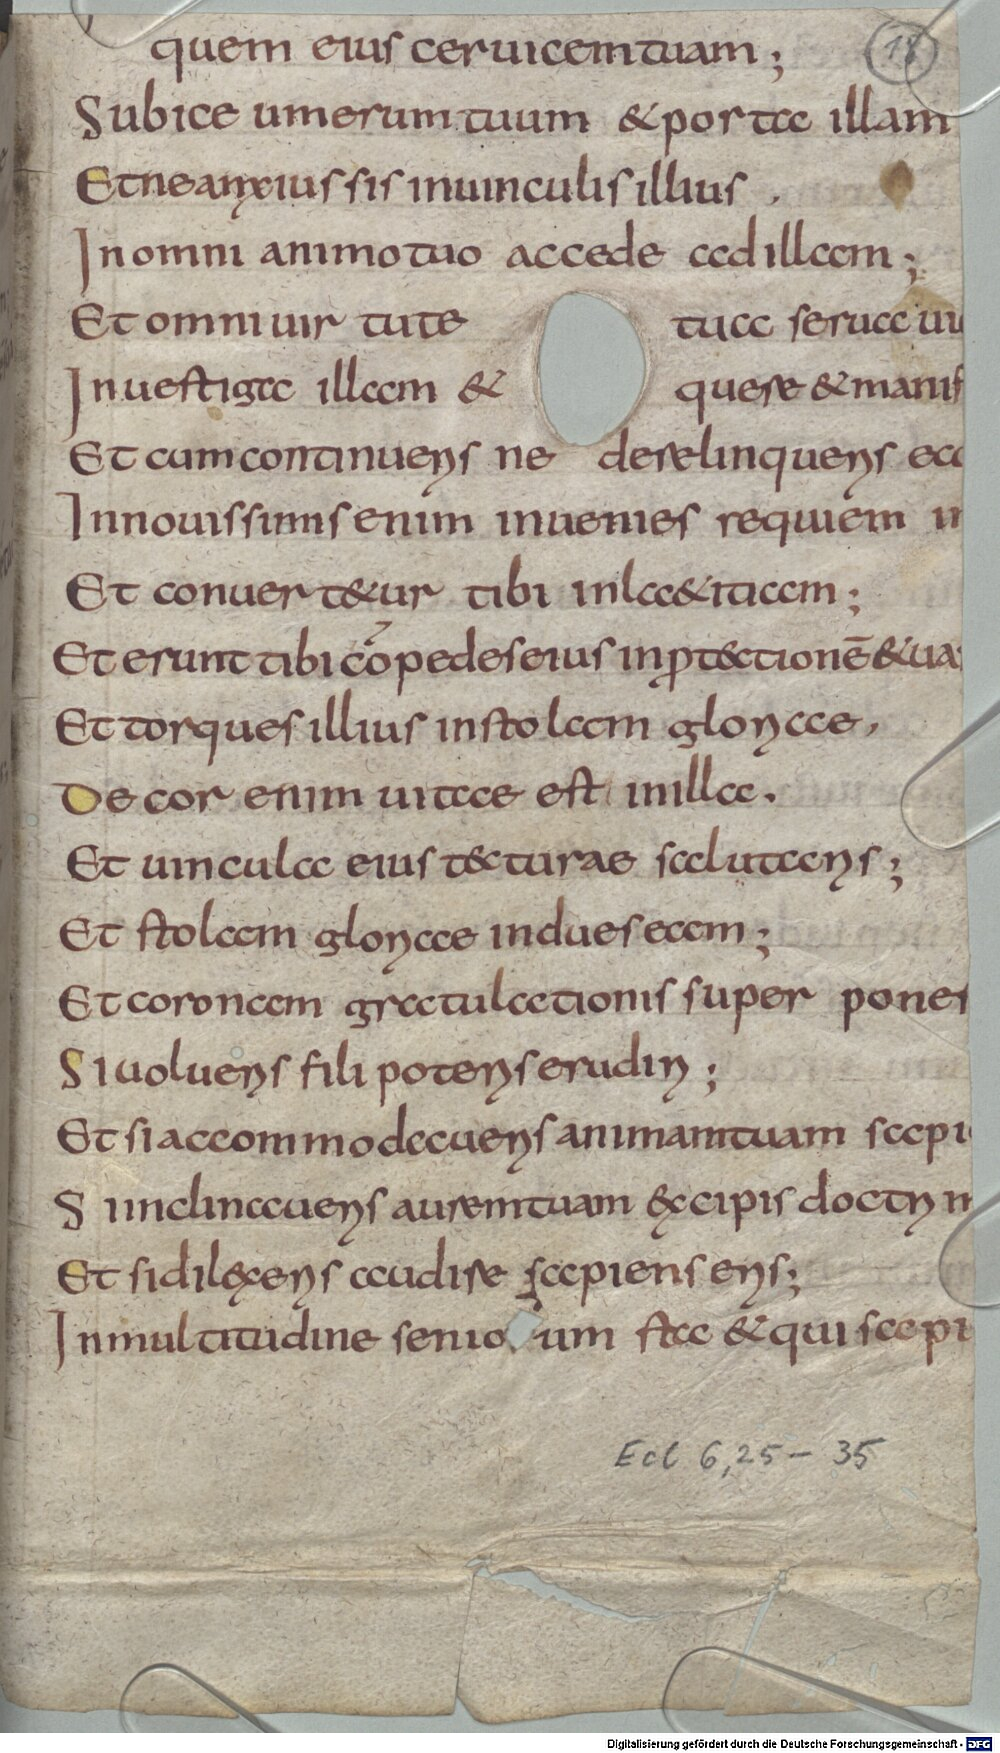 18
quem eius ceruicem tuam ;
Subice umerum tuum & porta illam
Et ne anxius sis inuinculis illius .
In omni animo tuo accede ad illam ;
Et omni uirtute tua serua ui
Inuestiga illam & quere & manif
Et cum continueris ne derelinqueris ea
In nouissimis enim inuenies requiem in
Et conuertetur tibi inlaetitiam ;
Et erunt tibi cōpedes eius inp̱tectionē & ua
Et torques illius in stolam gloriae .
Decor enim uitae est inilla .
Et uincula eius tecturae salutaris ;
Et stolam gloriae indues eam ;
Et coronam gratulationis super pones
Si uolueris fili poteris erudiri ;
Et si accommodaueris animam tuam sapi
Si inclinaueris aurem tuam excipis doctrin
Et si dilexeris audire sapiens eris ;
In multitudine senio um sta & qui sapi
Ecl 6,25 – 35
Digitalisierung gefördert durch die Deutsche Forschungsgemeinschaft - DFG